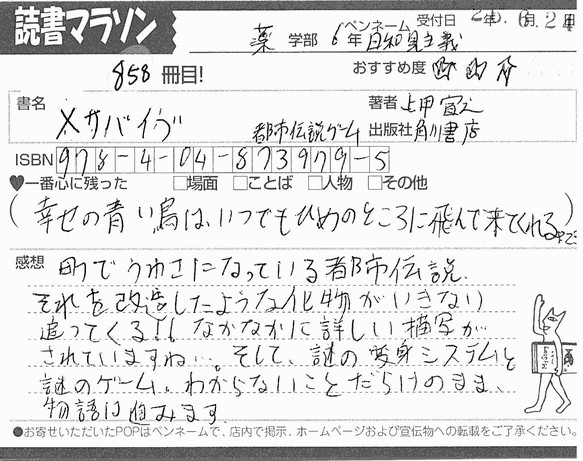 読書マラソン
薬 学部 6年 ペンネーム 日和見主義 受付日
858冊目! おすすめ度
書名 メサバイヴ 都市伝説ゲーム 著者 上甲宣之 出版社 角川書店
ISBN 978-4-04-873979-5
♥一番心に残った □場面 □ことば □人物 □その他
(幸せの青い鳥は、いつでもひめのところに飛んで来てくれる)
感想 町でうわさになっている都市伝説、
それを改造したような化物がいきない
追ってくる!!なかなかに詳しい描写が
されていますね…。そして、謎の変身システムと
謎のゲーム。わからないことだらけのまま、
物語は進みます。
●お寄せいただいたPOPはペンネームで、店内で掲示、ホームページおよび宣伝物への転載をご了承ください。